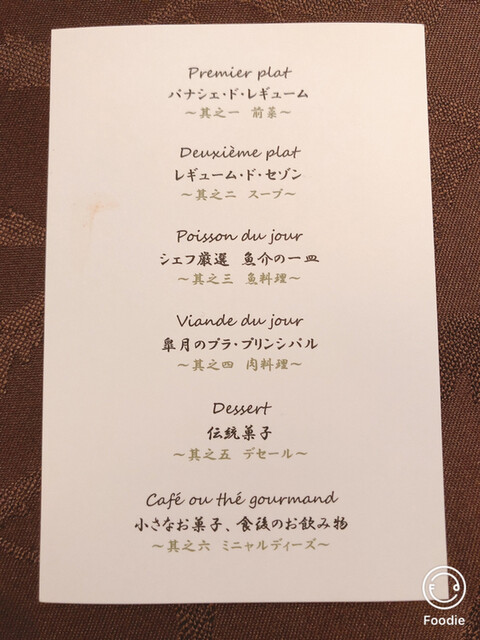 Premier plat
パナシェ・ド・レギューム
～其之一 前菜～
Deuxième plat
レギューム・ド・セゾン
～其之二 スープ～
Poisson du jour
シェフ厳選 魚介の一皿
～其之三 魚料理～
Viande du jour
皐月のプラ・プリンシパル
～其之四 肉料理～
Dessert
伝統菓子
～其之五 デセール～
Café ou thé gourmand
小さなお菓子、食後のお飲み物
～其之六 ミニャルディーズ～
Foodie